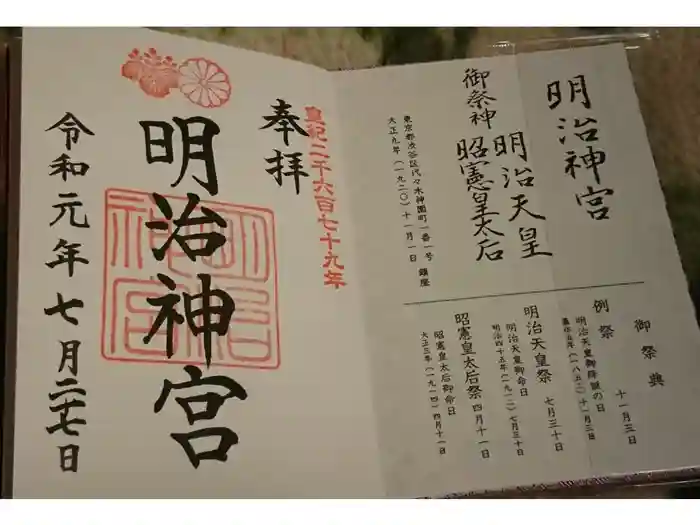 明治神宮
御祭神
明治天皇
昭憲皇太后
東京都渋谷区代々木神園町一番一号
大正九年(一九二〇)十一月一日 鎮座
御祭典
例祭 十一月三日
明治天皇御降誕の日
嘉永五年(一八五二)十一月三日
明治天皇祭 七月三十日
明治天皇御命日
明治四十五年(一九一二)七月三十日
昭憲皇太后祭 四月十一日
昭憲皇太后御命日
大正三年(一九一四)四月十一日
皇紀二千六百七十九年
奉拝
明治神宮
明治神宮
令和元年七月二十七日